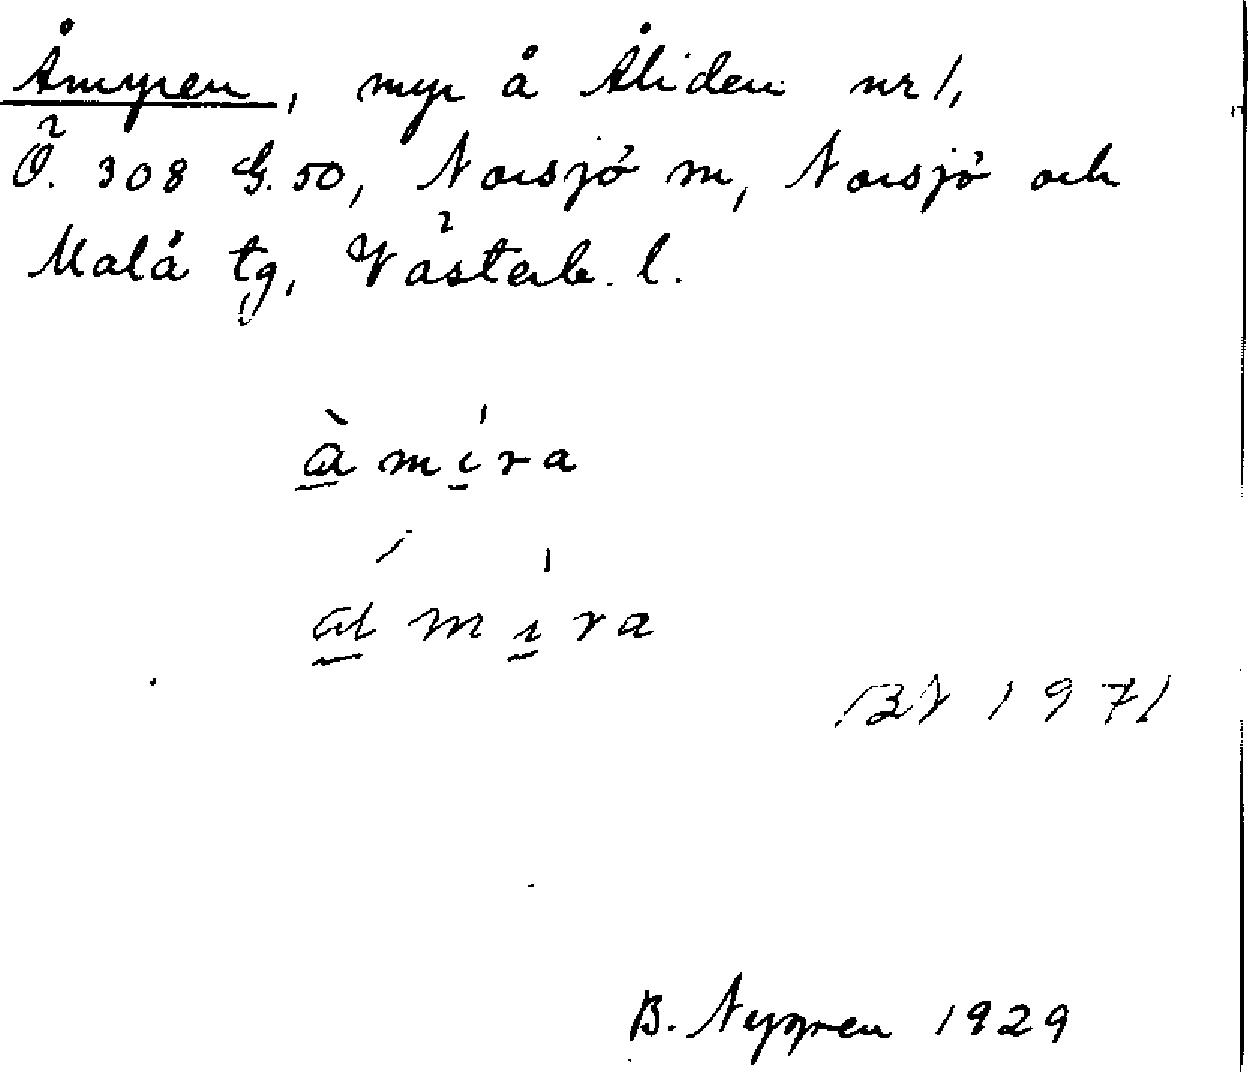 Åmyren, myr å Åliden nr 1,
Ö. 308 G. 50, Norsjö m, Norsjö och
Malå tg, Västerb. l.
à míra
á míra
1971
B. Nygren 1929